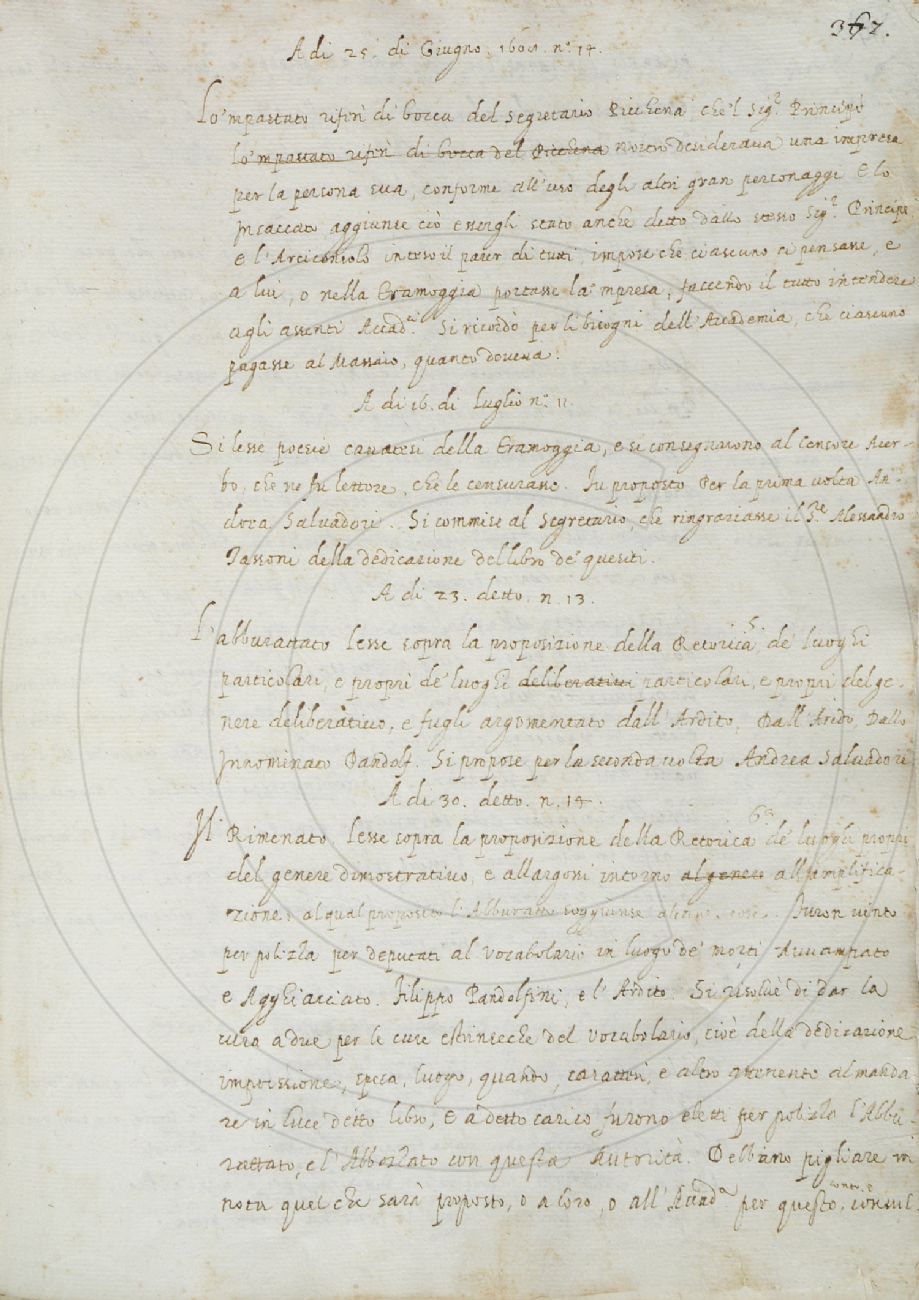 367.
A di 25. di Giugno. n.° 14.
Lo 'mpastato riferì di bocca del segretario Picchena, che 'l Sig.r Principe
lo 'mpastato riferì di bocca del Picchena nostro desiderava una impresa
per la persona sua, conforme all'uso degli altri gran personaggi E lo
Insaccato aggiunse ciò essergli stato anche detto dallo stesso Sig.r Principe
E l'Arciconsolo inteso il parer di tutti, impose che ciascuno ci pensasse, e
a lui, o nella Tramoggia portasse la 'mpresa, faccendo il tutto intendere
agli assenti Accad.ci Si ricordò per li bisogni dell'Accademia, che ciascuno
pagasse al Massaio, quanto doveva.
A di 16. di Luglio n.° 11.
Si lesse poesie cavatesi della Tramoggia, e si consegnarono al Censore Acer-
bo, che ne fu lettore, che le censurasse. Fu proposto Per la prima volta An-
drea Salvadori. Si commise al segretario, che ringraziasse il S.re Alessandro
Tassoni della dedicazione del libro de' quesiti.
A di 23. detto. n. 13.
L'abburattato lesse sopra la proposizione della Retorica 5. de' luoghi
particolari, e proprj de' luoghi deliberativi particolari, e proprj del ge-
nere deliberativo, e fugli argomentato dall'Ardito, Dall'Arido, Dallo
Innominato Pandolf. Si propose per la seconda volta Andrea Salvadori
A di 30. detto. n. 14.
Il Rimenato lesse sopra la proposizione della Retorica 6a de' luoghi proprj
del genere dimostrativo, e allargossi intorno al genere all'amplifica-
zione: al qual proposito l'Abburatto soggiunse alcune cose. Furon vinto
per polizza per deputati al vocabolario in luogo de' morti Avvampato
e Agghiacciato. Filippo Pandolfini, e l'Ardito. Si risolvè di dar la
cura a due per le cure estrinseche del vocabolario, cioè della dedicazione
impressione, spesa, luogo, quando, caratteri, e altro attenente al manda-
re in luce detto libro, E a detto carico furono eletti per polizza l'Abbu-
rattato, e l'Abbozzato con questa autorità. Debbano pigliare in
nota quel che sarà proposto, o a loro, o all'Accad.a per questo conto, e consul-